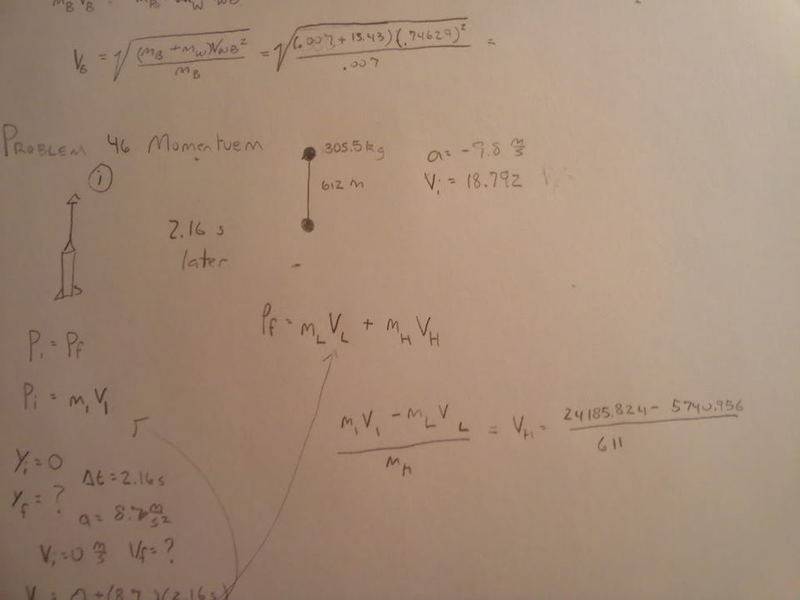 V_B = √((m_B + m_W)V_WB² / m_B) = √((.007 + 13.43)(.74629)² / .007) =
PROBLEM 46 Momentuem
305.5 kg
a = -9.8 m/s
1
612 m
V_i = 18.792
2.16 s
later
P_f = m_L V_L + m_H V_H
P_i = P_f
P_i = m_1 V_1
(m_1 V_1 - m_L V_L) / m_H = V_H = (24185.824 - 5740.956) / 611
Y_i = 0
Δt = 2.16 s
Y_f = ?
a = 8.7 m/s²
V_i = 0 m/s V_f = ?
(8.7)(2.16s)